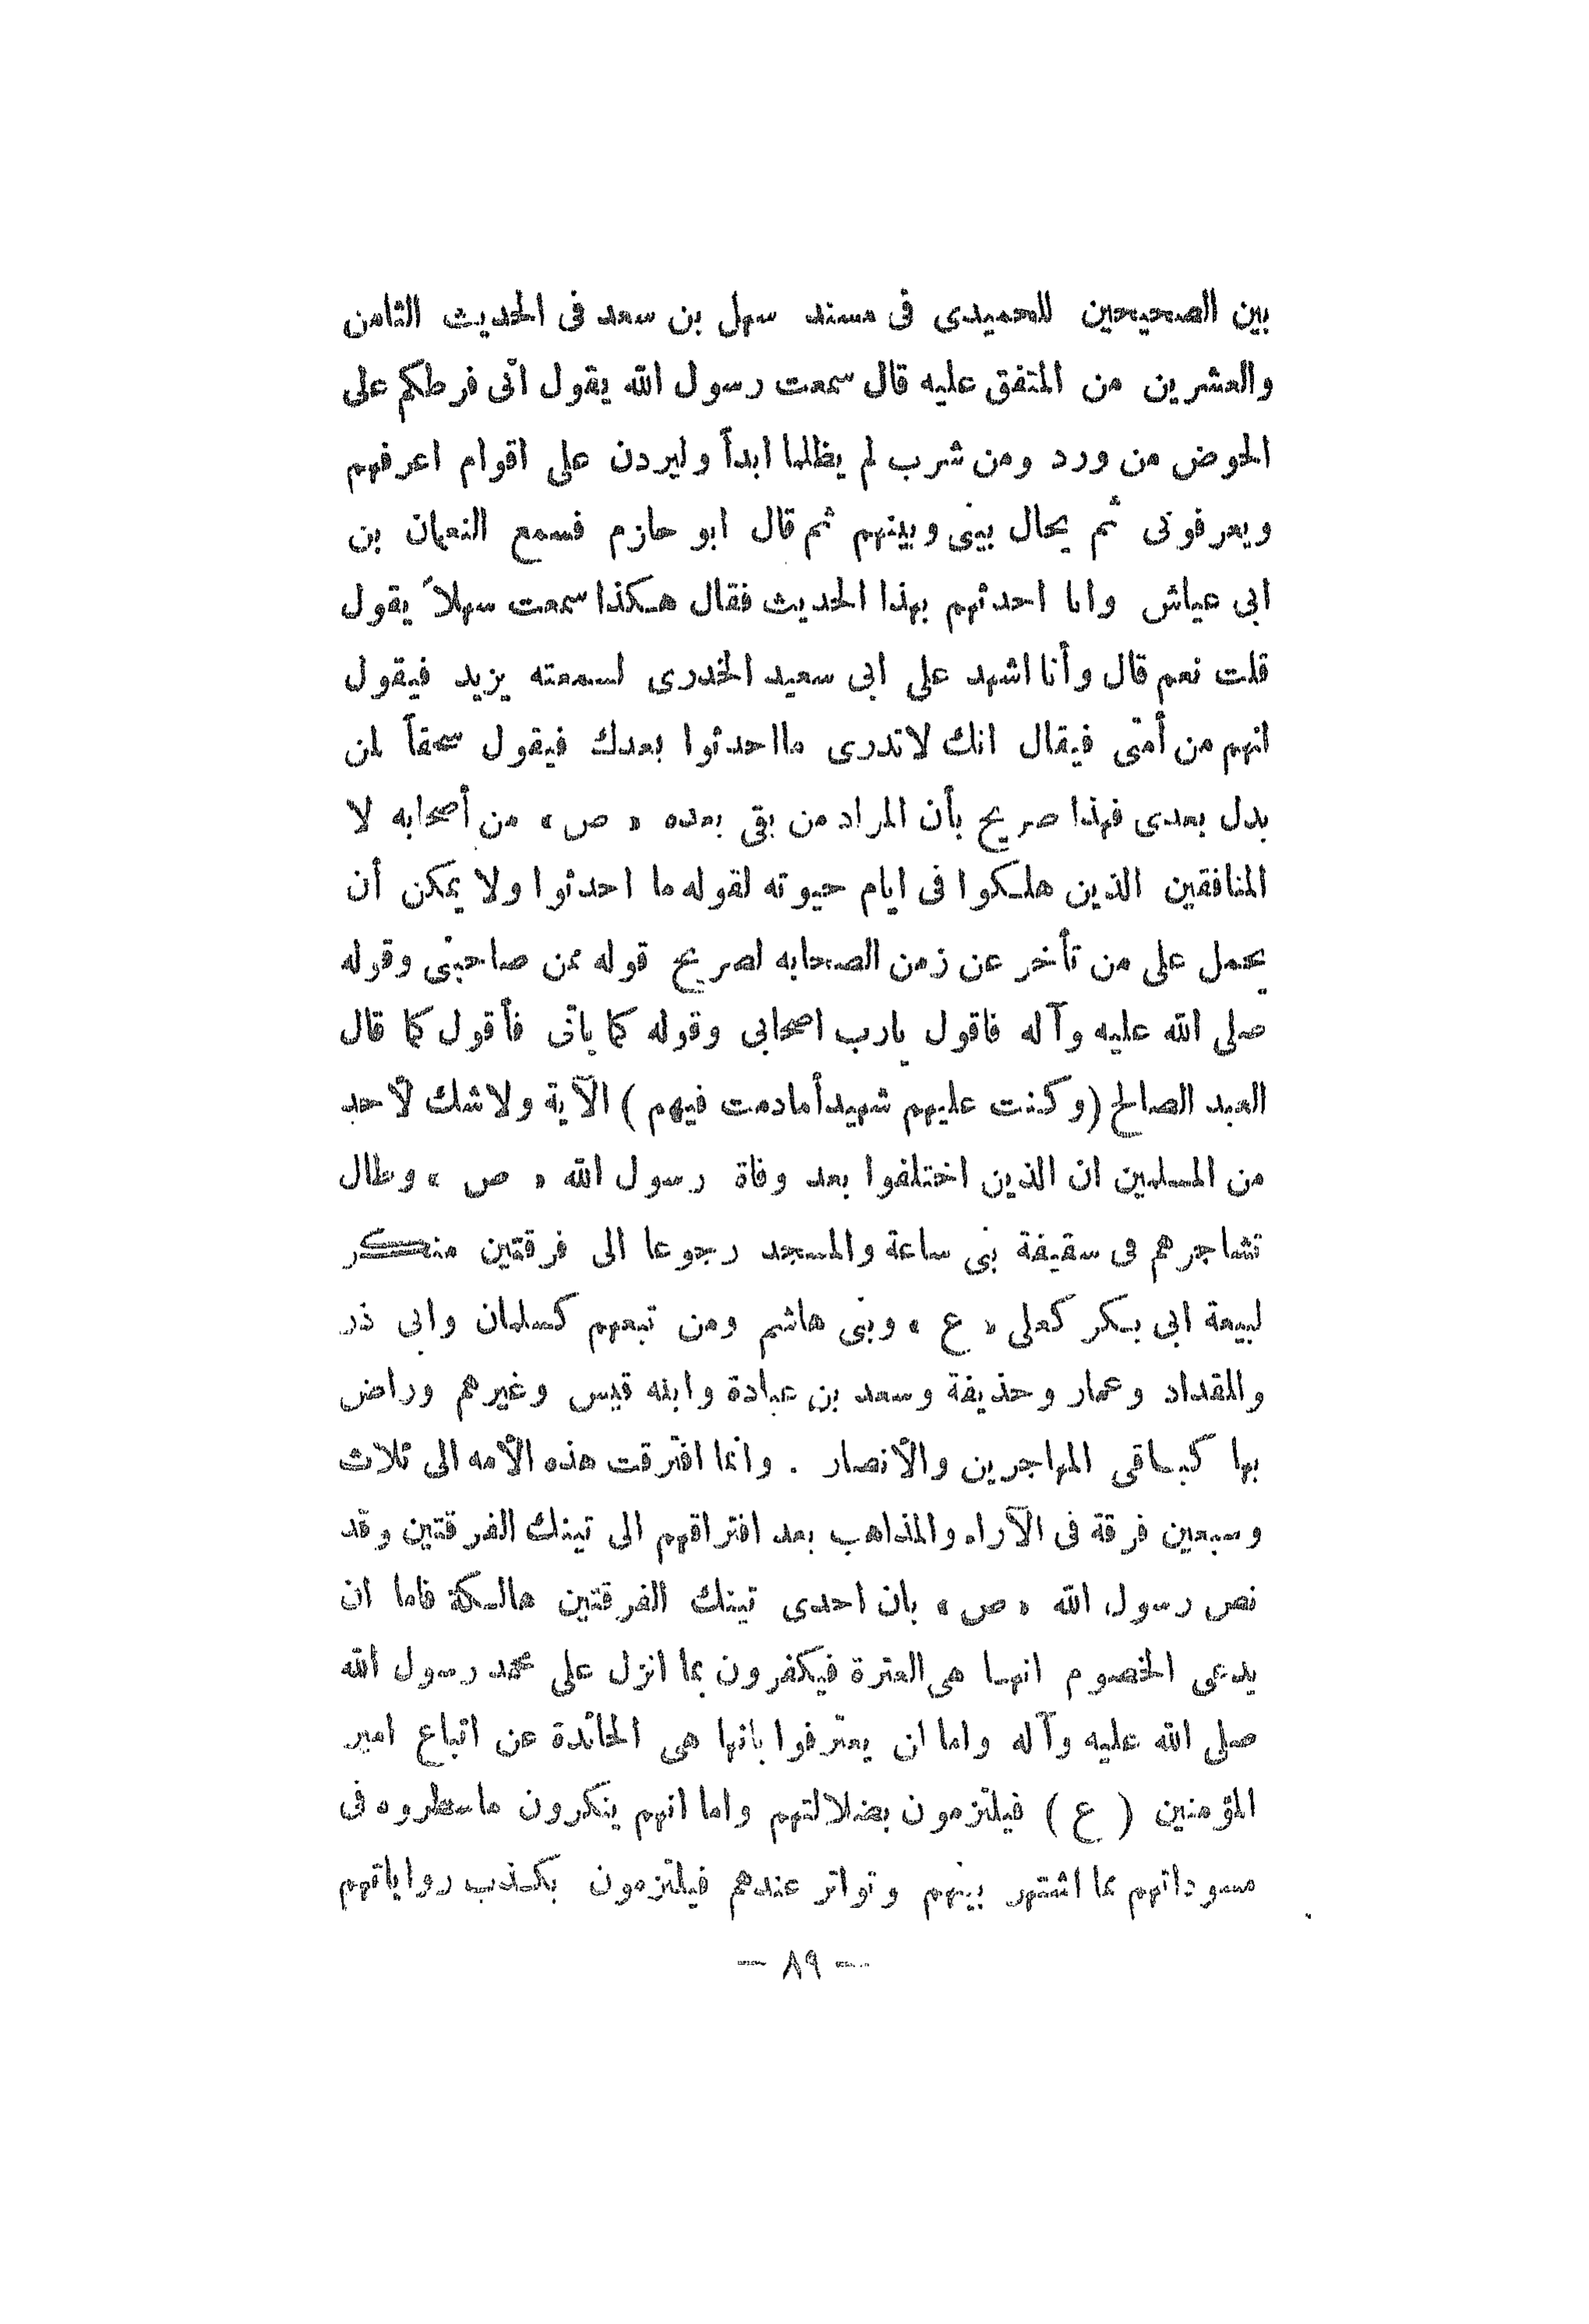 بين الصحيحين للحميدى فى مسند سهل بن سعد فى الحديث الثامن
والعشرين من المتفق عليه قال سمعت رسول الله يقول انّى فرطكم على
الحوض من ورد ومن شرب لم يظلما ابداً وليردن على اقوام اعرفهم
ويعرفونى ثم يحال بينى وبينهم ثم قال ابو حازم فسمع النعمان بن
ابى عياش وانا احدثهم بهذا الحديث فقال هكذا سمعت سهلاً يقول
قلت نعم قال وأنا اشهد على ابى سعيد الخدرى لسمعته يزيد فيقول
انهم من أمّتى فيقال انك لاتدرى مااحدثوا بعدك فيقول سحقاً لمن
بدل بعدى فهذا صريح بأن المراد من بقى بعده « ص » من أصحابه لا
المنافقين الذين هلكوا فى ايام حيوته لقوله ما احدثوا ولا يمكن أن
يحمل على من تأخر عن زمن الصحابه لصريح قوله ممن صاحبنى وقوله
صلى الله عليه وآله فاقول يارب اصحابى وقوله كما يأتى فأقول كما قال
العبد الصالح (وكنت عليهم شهيداًمادمت فيهم ) الآية ولاشك لأحد
من المسلمين ان الذين اختلفوا بعد وفاة رسول الله « ص » وطال
تشاجرهم فى سقيفة بنى ساعة والمسجد رجوعا الى فرقتين منكر
لبيعة ابى بكر كعلى « ع » وبنى هاشم ومن تبعهم كسلمان وابى ذر
والمقداد وعمار وحذيفة وسعد بن عبادة وابنه قيس وغيرهم وراض
بها كباقى المهاجرين والأنصار . وانما افترقت هذه الأمه الى ثلاث
وسبعين فرقة فى الآراء والمذاهب بعد افتراقهم الى تينك الفرقتين وقد
نص رسول الله « ص » بان احدى تينك الفرقتين هالكة فاما ان
يدعى الخصوم انها هى العترة فيكفرون بما انزل على محمد رسول الله
صلى الله عليه وآله واما ان يعترفوا بانها هى الحائدة عن اتباع امير
المؤمنين ( ع ) فيلتزمون بضلالتهم واما انهم ينكرون ماسطروه فى
مسوداتهم مما اشتهر بينهم وتواتر عندهم فيلتزمون بكذب رواياتهم
— ٨٩ —